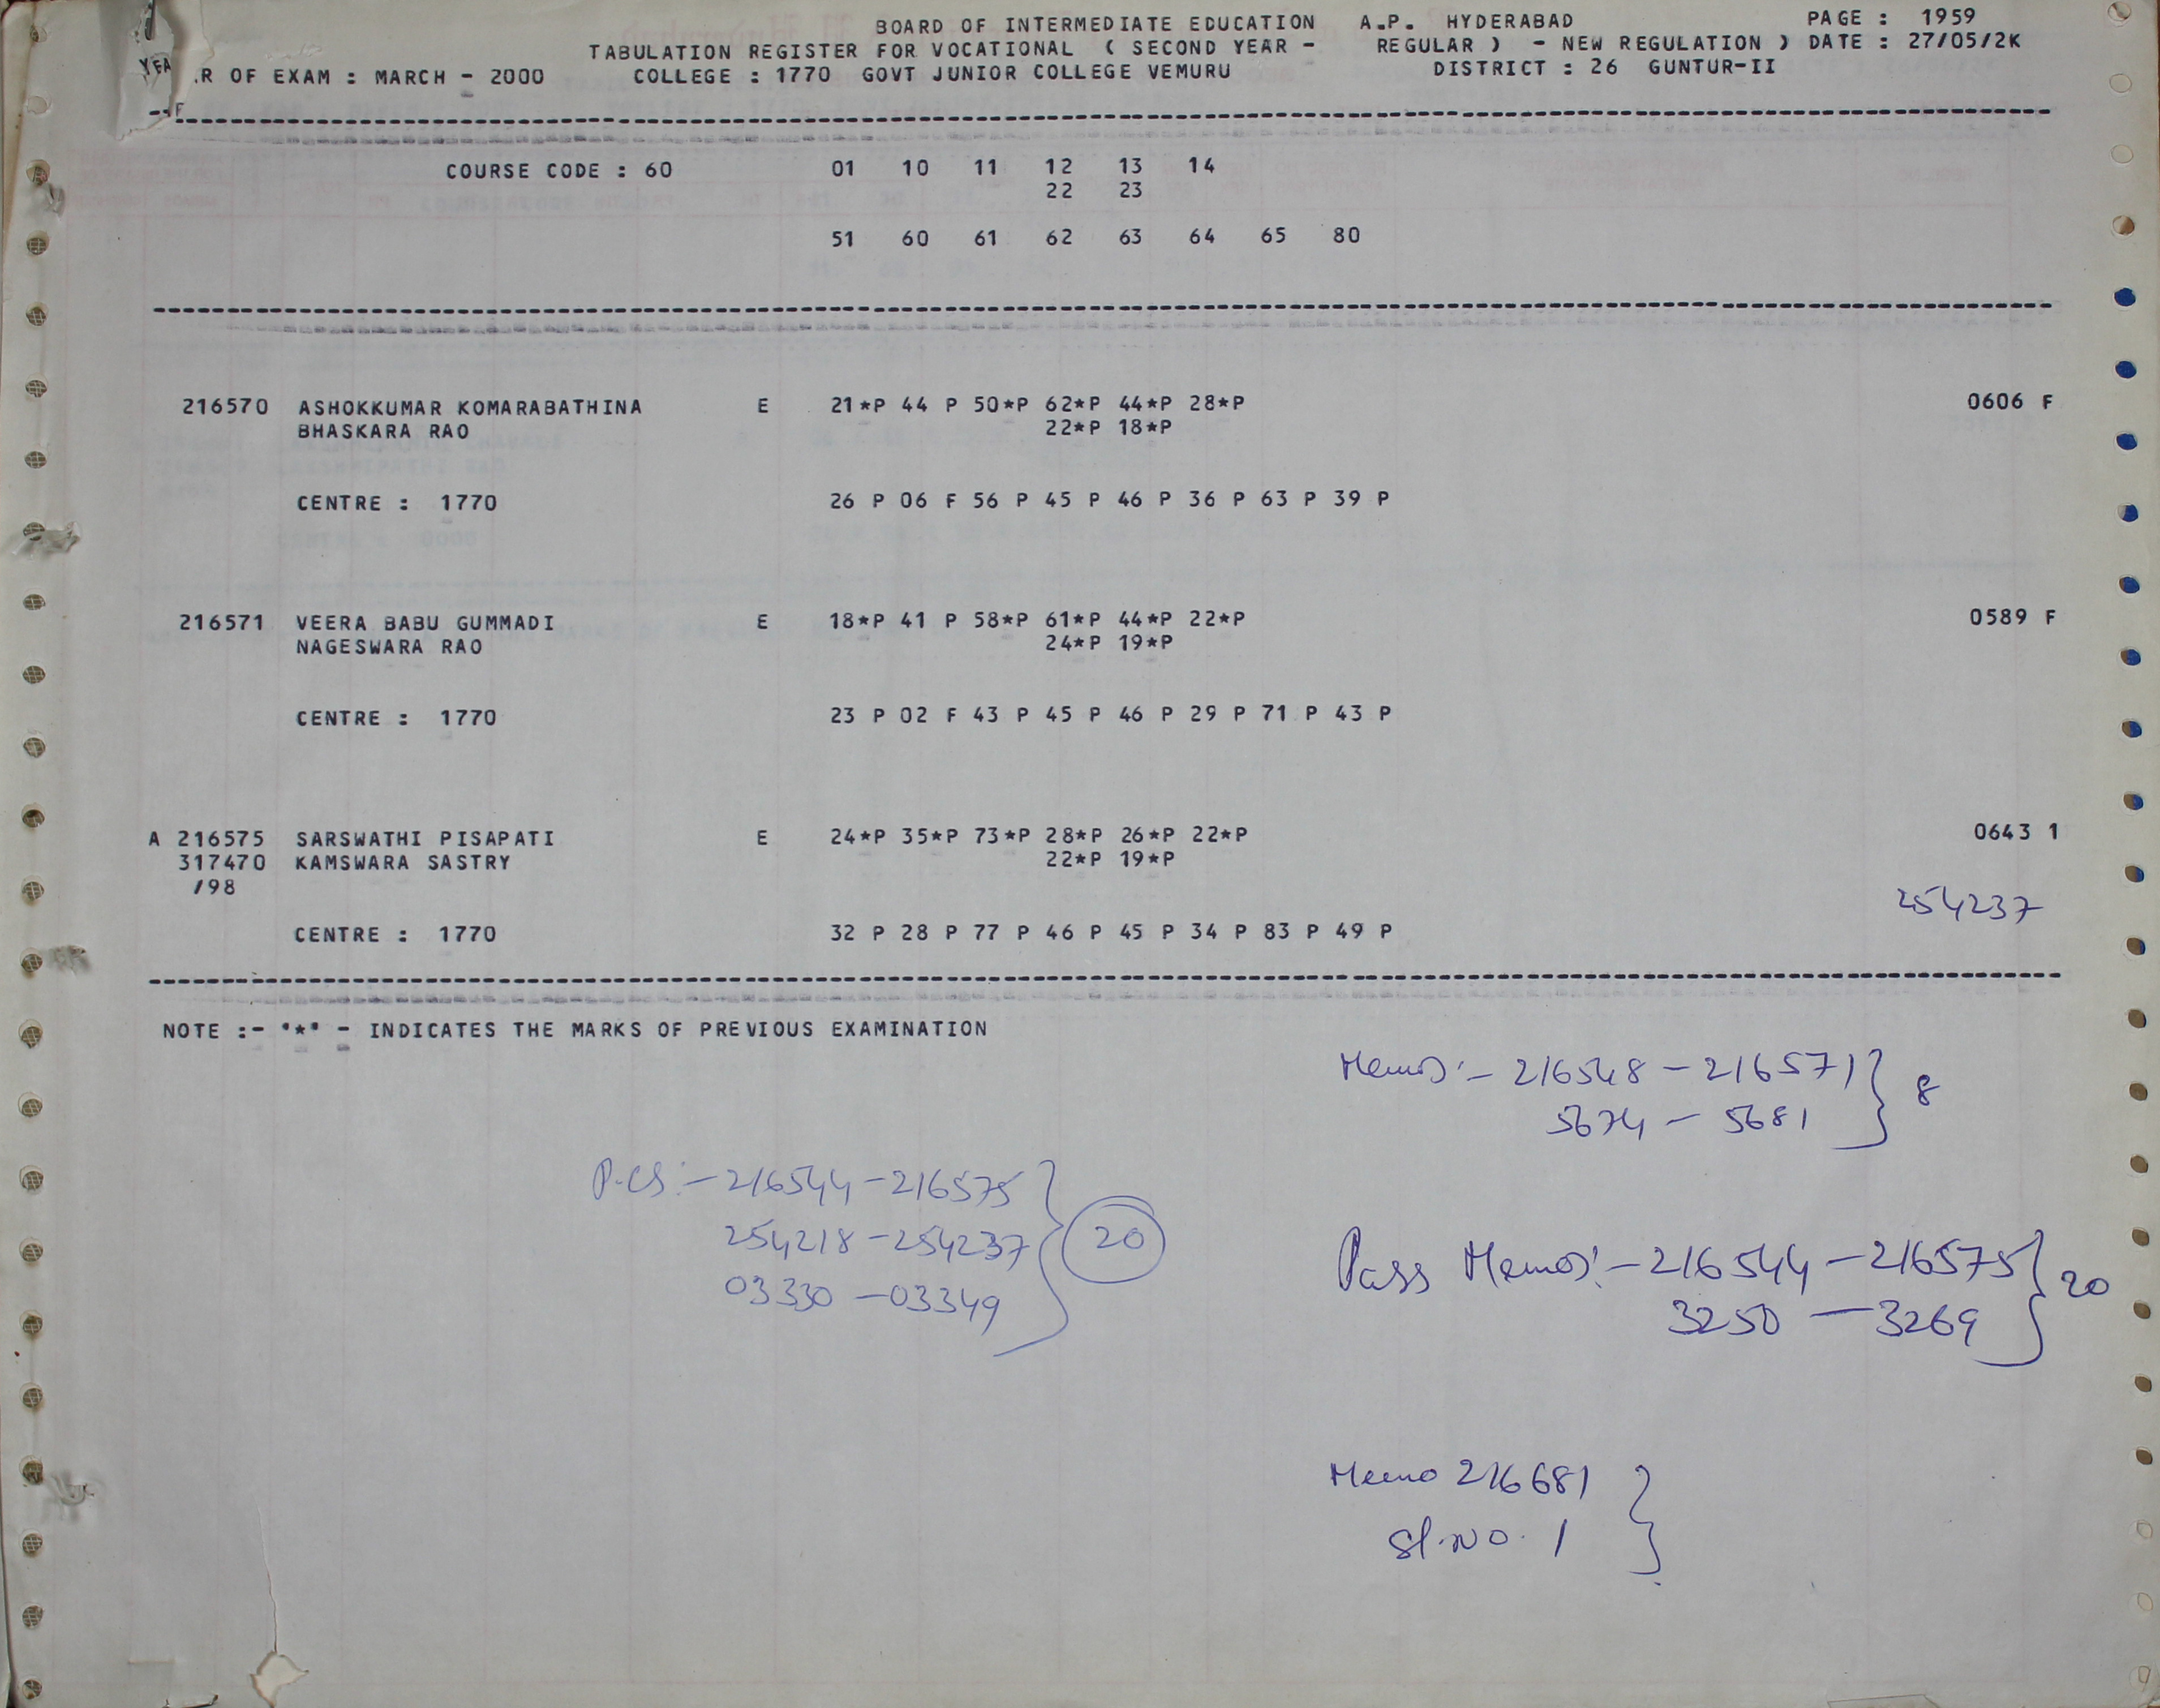 BOARD OF INTERMEDIATE EDUCATION A.P. HYDERABAD PAGE : 1959
TABULATION REGISTER FOR VOCATIONAL ( SECOND YEAR - REGULAR ) - NEW REGULATION ) DATE : 27/05/2K
YEAR OF EXAM : MARCH - 2000 COLLEGE : 1770 GOVT JUNIOR COLLEGE VEMURU DISTRICT : 26 GUNTUR-II
COURSE CODE : 60 01 10 11 12 13 14
22 23
51 60 61 62 63 64 65 80
216570 ASHOKKUMAR KOMARABATHINA E 21*P 44 P 50*P 62*P 44*P 28*P 0606 F
BHASKARA RAO 22*P 18*P
CENTRE : 1770 26 P 06 F 56 P 45 P 46 P 36 P 63 P 39 P
216571 VEERA BABU GUMMADI E 18*P 41 P 58*P 61*P 44*P 22*P 0589 F
NAGESWARA RAO 24*P 19*P
CENTRE : 1770 23 P 02 F 43 P 45 P 46 P 29 P 71 P 43 P
A 216575 SARSWATHI PISAPATI E 24*P 35*P 73*P 28*P 26*P 22*P 0643 1
317470 KAMSWARA SASTRY 22*P 19*P
/98
254237
CENTRE : 1770 32 P 28 P 77 P 46 P 45 P 34 P 83 P 49 P
NOTE :- "*" - INDICATES THE MARKS OF PREVIOUS EXAMINATION
Memos:- 216548 - 216571 } 8
5674 - 5681
P.Cs:- 216544 - 216575
254218 - 254237 } 20
03330 - 03349
Pass Memos:- 216544 - 216575 } 20
3250 - 3269
Memo 216681 }
Sl.No. 1